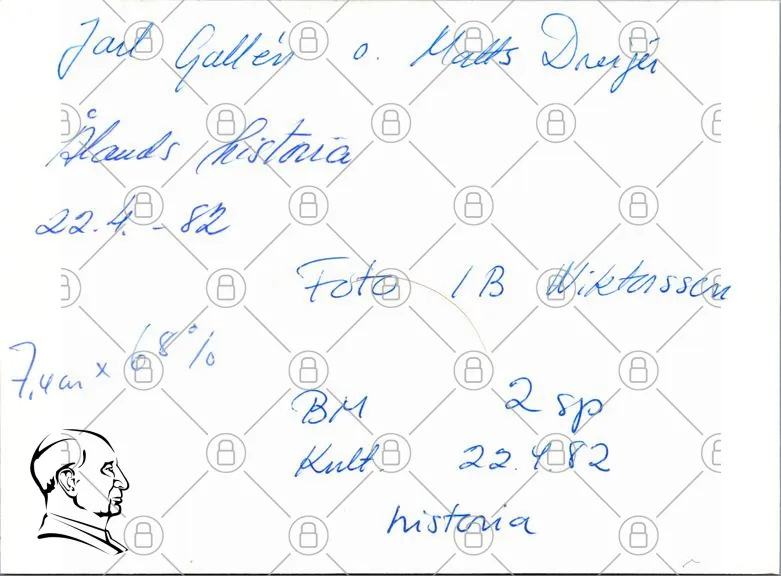 Jarl Gallén o. Matts Dreijer
Ålands historia
22.4. - 82
Foto IB Wiktorsson
7,4 cm x 68%
BM 2 sp
Kult. 22.4 82
historia